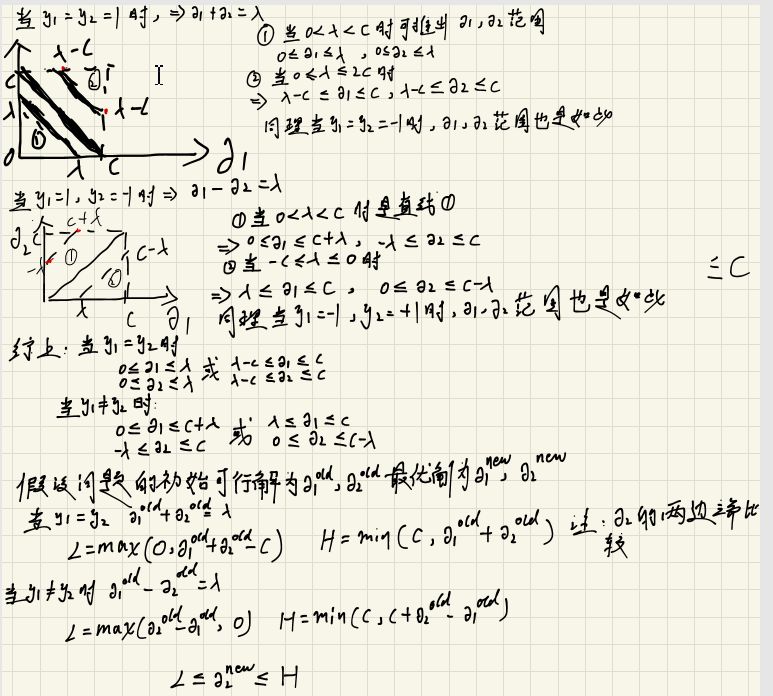 当 y₁=y₂=1时, ⇒ ∂₁+∂₂=λ
① 当 0<λ<C 时可推出 ∂₁,∂₂ 范围
0≤∂₁≤λ , 0≤∂₂≤λ
② 当 0≤λ≤2C时
⇒ λ-C≤∂₁≤C, λ-C≤∂₂≤C
同理当 y₁=y₂=-1时, ∂₁,∂₂ 范围也是
λ-C
C
②
λ
λ-C
①
0
λ
C
∂₁
当 y₁=1, y₂=-1 时 ⇒ ∂₁-∂₂=λ
①当 0<λ<C 时是直线①
⇒ 0≤∂₁≤C+λ, -λ≤∂₂≤C
②当 -C≤λ≤0时
⇒ λ≤∂₁≤C, 0≤∂₂≤C-λ
同理当 y₁=-1, y₂=+1时, ∂₁,∂₂ 范围也是
C+λ
∂₂
C
-λ
①
②
C-λ
λ
C
∂₁
三C
综上: 当 y₁=y₂时
0≤∂₁≤λ 或 λ-C≤∂₁≤C
0≤∂₂≤λ λ-C≤∂₂≤C
当 y₁≠y₂时:
0≤∂₁≤C+λ 或 λ≤∂₁≤C
-λ≤∂₂≤C 0≤∂₂≤C-λ
假设问题的初始可行解为∂₁ᵒˡᵈ, ∂₂ᵒˡᵈ 最优解为∂₁ⁿᵉʷ, ∂₂ⁿᵉʷ
当 y₁=y₂ ∂₁ᵒˡᵈ+∂₂ᵒˡᵈ=λ
L=max(0,∂₁ᵒˡᵈ+∂₂ᵒˡᵈ-C) H=min(C,∂₁ᵒˡᵈ+∂₂ᵒˡᵈ) 注: ∂₂的两边端比
较
当y₁≠y₂时 ∂₁ᵒˡᵈ-∂₂ᵒˡᵈ=λ
L=max(∂₂ᵒˡᵈ-∂₁ᵒˡᵈ, 0) H=min(C, C+∂₂ᵒˡᵈ-∂₁ᵒˡᵈ)
L≤∂₂ⁿᵉʷ≤H